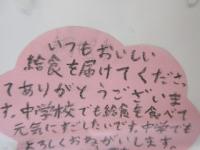 いつもおいしい
給食を届けてくださっ
てありがとうございま
す。中学校でも給食を食べて
元気にすごしたいです。中学でも
よろしくおねがいします。